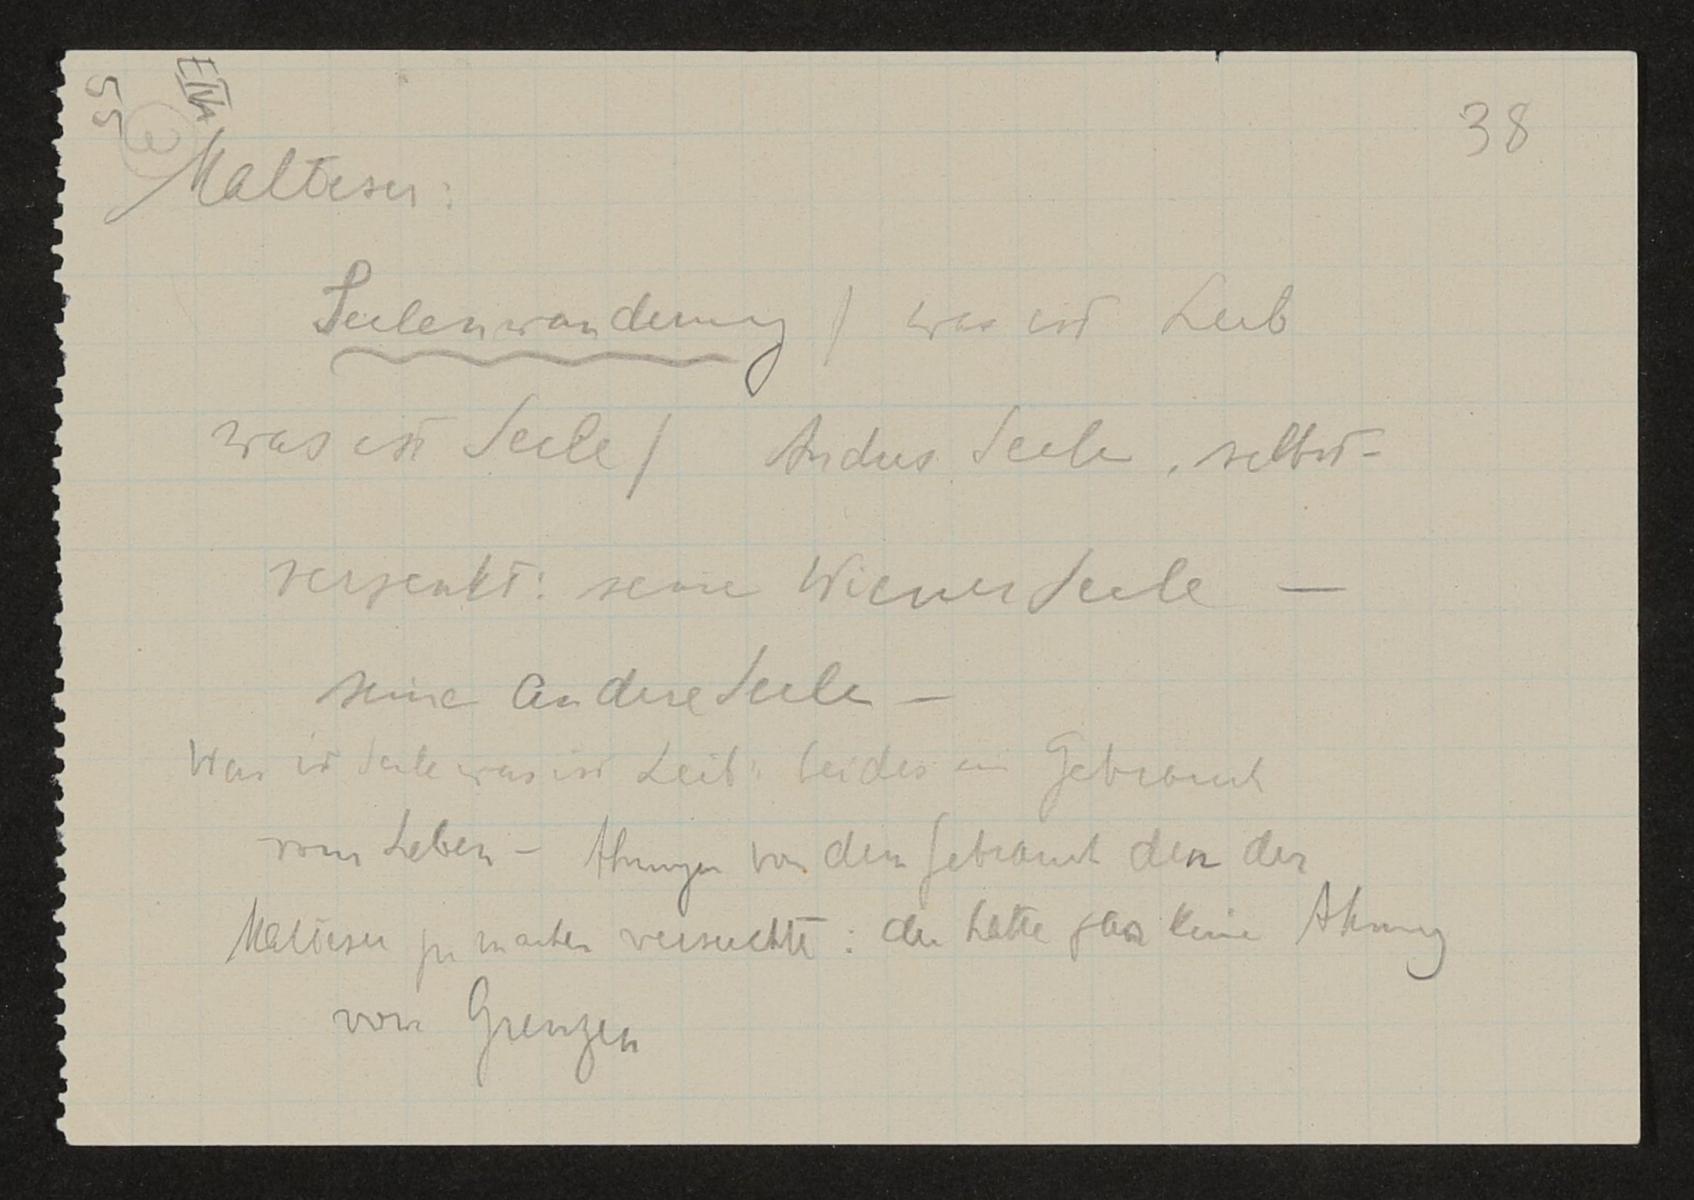 E IV A
55
3
38
Malteser:
Seelenwanderung / was ist Leib
was ist Seele / Andres Seele, selbst-
versenkt: seine Wiener Seele —
seine andere Seele —
Was ist Seele was ist Leib: beides ein Gebrauch
vom Leben — Ahnungen von dem Gebrauch den der
Malteser zu machen versuchte: der hatte gar keine Ahnung
von Grenzen